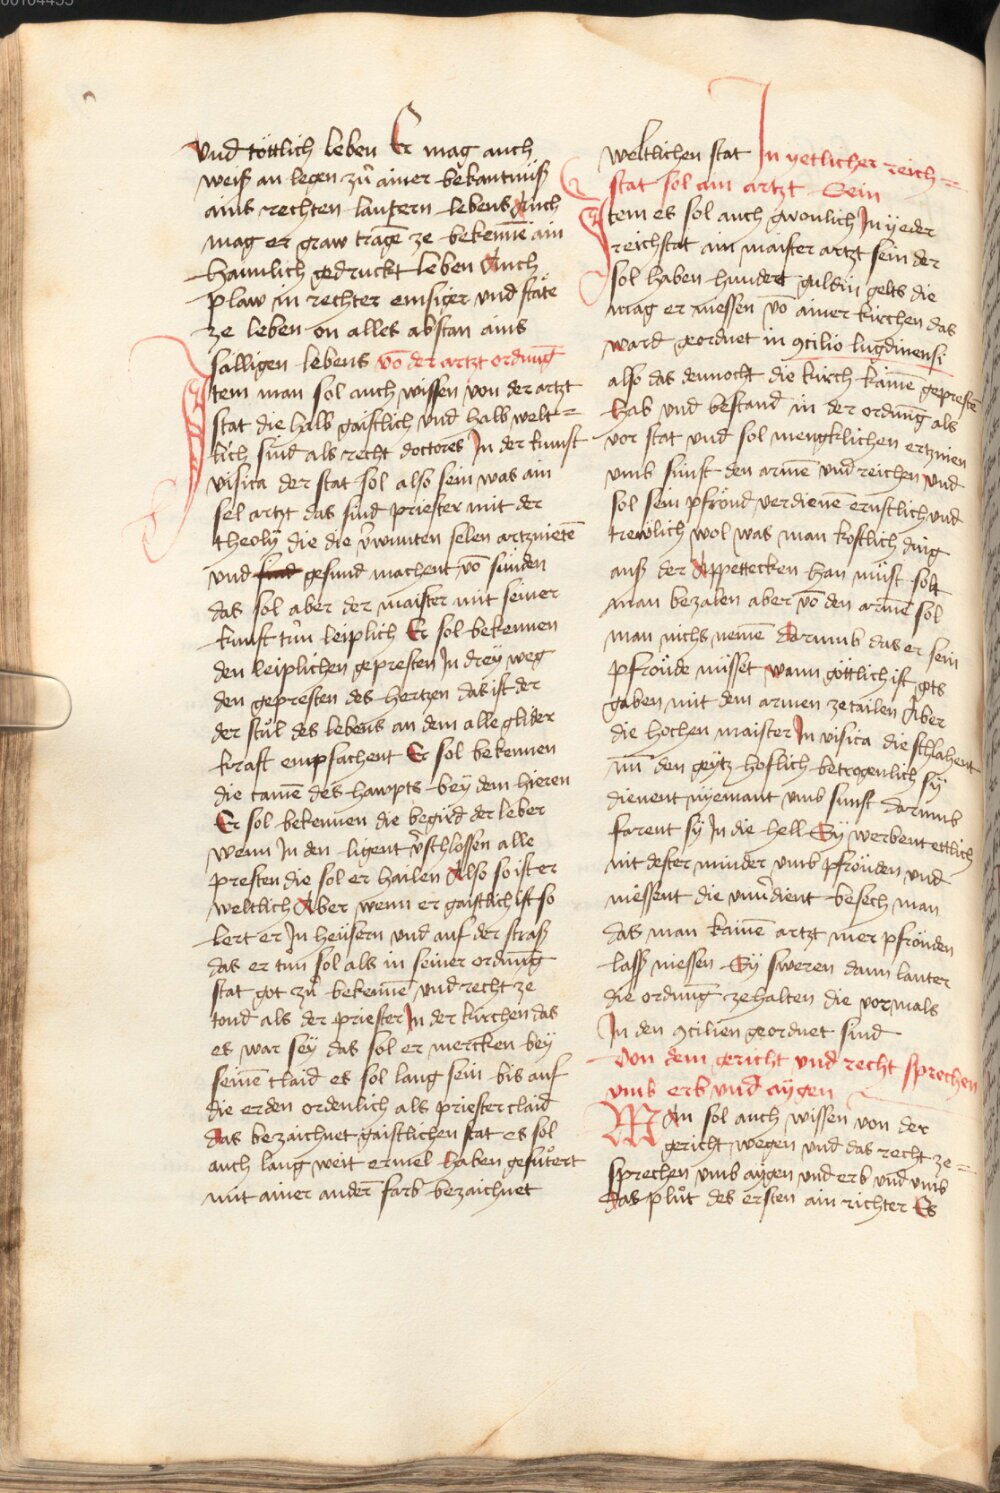 vnd töttlich leben Er mag auch
weiß an legen zů ainer bekantnüß
ains rechten lautern lebens Auch
mag er graw tragē ze bekennē ain
haimlich gedruckt leben Auch
plaw in rechter einsiger vnd stäte
ze leben on alles abstan ains
sälligen lebens vō der artzt ordnūg
Item man sol auch wissen von der artzt
stat die halb gaistlich vnd halb welt=
lich sind als recht doctores In der kunst
visica der stat sol also sein was ain
sel artzt das sind priester mit der
theoly die die v̄wunten selen artznietē
vnd gesund machent vō sünden
das sol aber der maister mit seiner
kunst tůn leiplich Er sol bekennen
den leiplichen gepresten In drey weg
den gepresten des hertzen das ist der
der stůl des lebens an dem alle glider
kraft empfachent Er sol bekennen
die camē des hawpts bey dem hieren
Er sol bekennen die begird der leber
wenn In den ligent v̄schlossen alle
presten die sol er hailen Also so ist er
weltlich Aber wenn er gaistlich ist so
lert er In heüsern vnd auf der straß
das er tůn sol als in seiner ordnūg
stat got zů bekennē vnd recht ze
tond als der priester In der kirchen das
es war sey das sol er mercken bey
seinē claid es sol lang sein bis auf
die erden ordenlich als priester claid
das bezaichnet gaistlichen stat es sol
auch lang weit ermel haben gefůtert
mit ainer andern farb bezaichnet
weltlichen stat In yetlicher reich=
stat sol ain artzt Sein
Item es sol auch gwonlich In yeder
reichstat ain maister artzt sein der
sol haben hundert guldin gelts die
mag er niessen vō ainer kirchen das
ward geordnet in 9cilio lugdinensi
also das dennocht die kirch kainē gepresten
hab vnd bestand in der ordnūg als
vor stat vnd sol mengklichen ertznien
vmb sunst den armē vnd reichen vnd
sol sein pfrönd verdienē ernstlich vnd
trewlich wol was man kostlich ding
auß der Appettecken han müst solt
man bezalen aber vō den armē sol
man nichs nemē darumb das er sein
pfröude nüsset wann göttlich ist gots
gaben mit dem armen ze tailen Aber
die hochen maister In visica die schlahent
nū den geytz hoflich betrogenlich sy
dienent nyemant vmb sunst darumb
farent sy In die hell Sy werbent ettlich
nit dester minder vmb pfröuden vnd
niessent die vnu̅dient besech man
das man kainē artzt mer pfrönden
lass niessen Sy sweren dann lauter
die ordnūg ze halten die vormals
In den 9cilien geordnet sind
Von dem gericht vnd recht sprechen
vmb erb vnd aygen
MAn sol auch wissen von der
gericht wegen vnd das recht ze=
sprechen vmb aygen vnd erb vnd vmb
das plůt des ersten ain richter Es